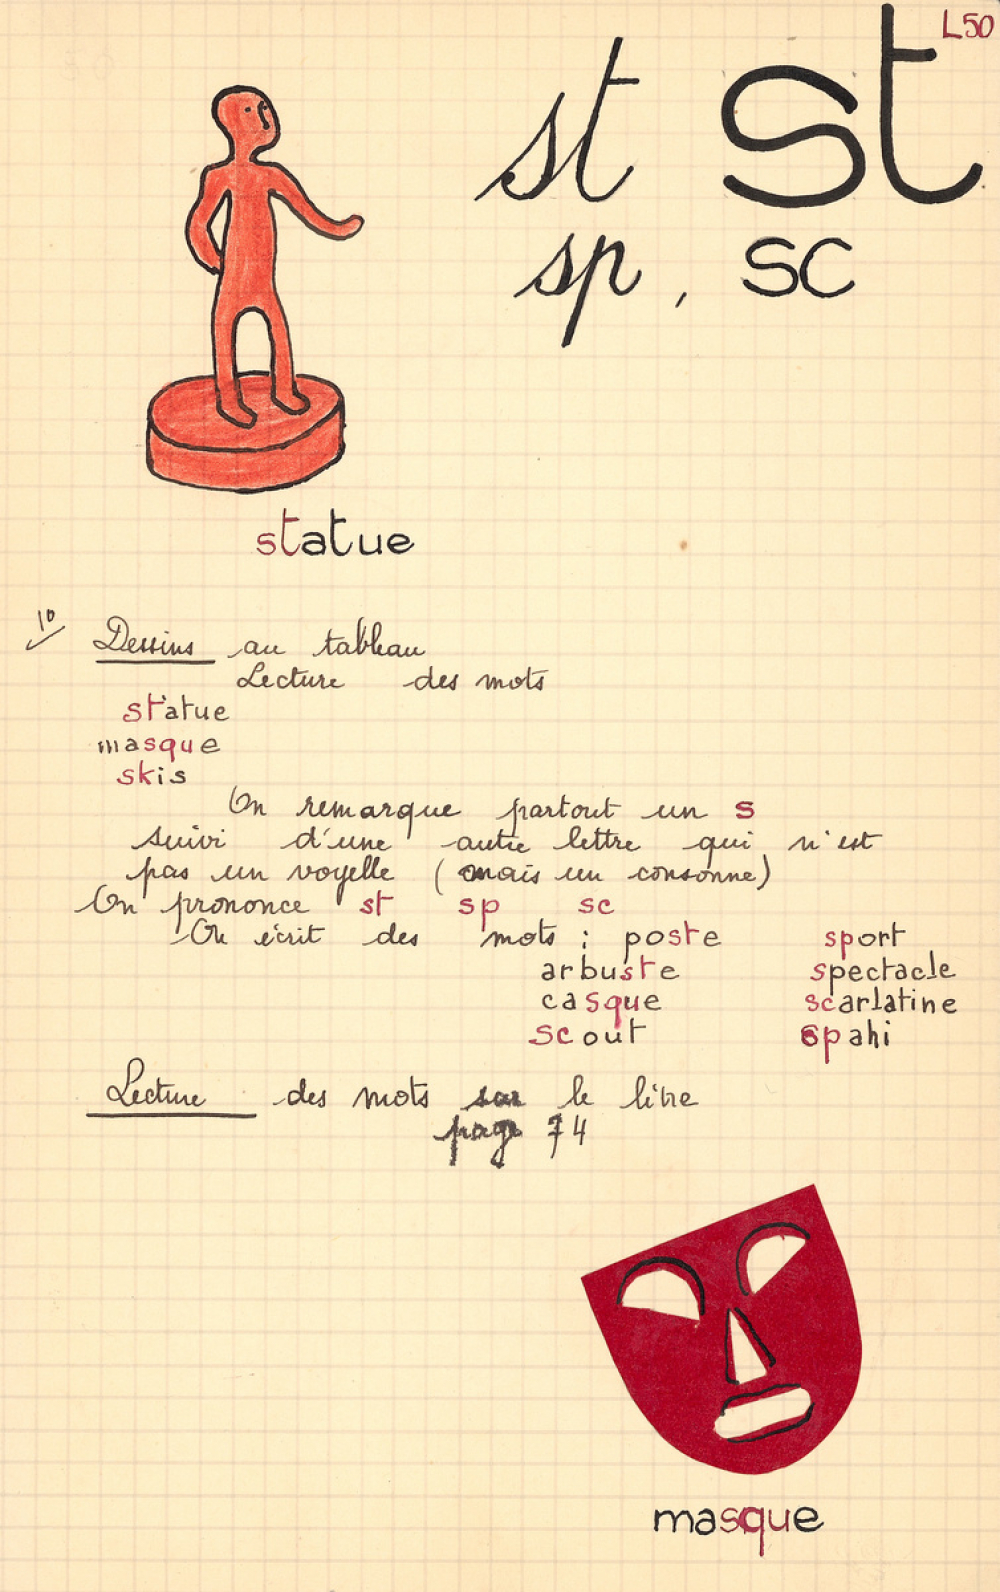 L50
st st
sp, sc
statue
1º Dessins au tableau
Lecture des mots
statue
masque
skis
On remarque partout un s
suivi d'une autre lettre qui n'est
pas un voyelle (mais un consonne)
On prononce st sp sc
On écrit des mots : poste sport
arbuste spectacle
casque scarlatine
scout spahi
Lecture des mots sur le livre
page 74
masque